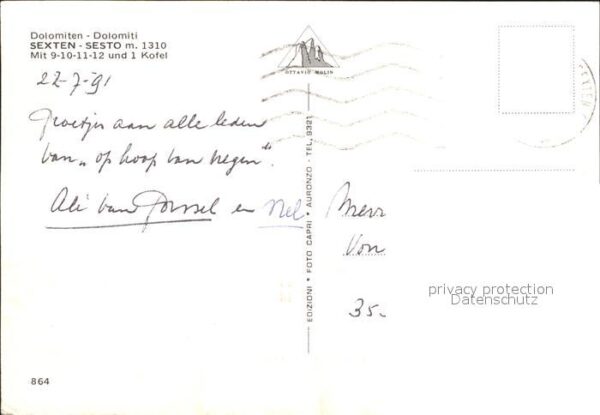 Dolomiten - Dolomiti
SEXTEN - SESTO m. 1310
Mit 9-10-11-12 und 1 Kofel
22-7-91
Groetjes aan alle leden
van „op hoop van regen".
Ali van en Nel
OTTAVIO MOLIN
EDIZIONI • FOTO CAPRI • AURONZO - TEL. 9321
Mevr
Von
35-
privacy protection
Datenschutz
864